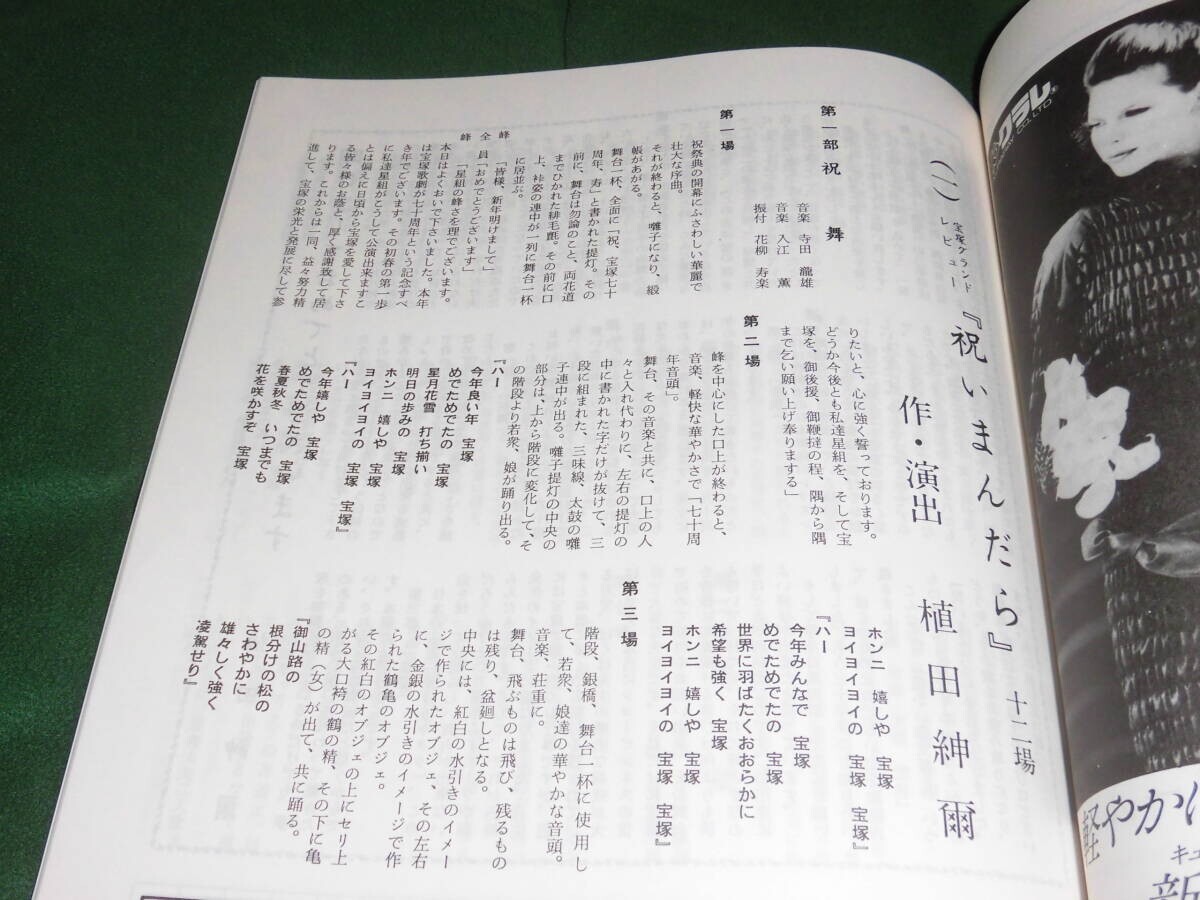 (一) 宝塚グランド
レビュー
『祝いまんだら』 十二場
作・演出 植田紳爾
第一部 祝舞
音楽 寺田瀧雄
音楽 入江薫
振付 花柳寿楽
第一場
祝祭典の開幕にふさわしい華麗で
壮大な序曲。
それが終わると、囃子になり、緞
帳があがる。
舞台一杯、全面に「祝、宝塚七十
周年、寿」と書かれた提灯。その
前に、舞台は勿論のこと、両花道
までひかれた緋毛氈。その前に口
上、裃姿の連中が一列に舞台一杯
に居並ぶ。
峰 「皆様、新年明けまして」
全員「おめでとうございます」
峰 「星組の峰さを理でございます。
本日はよくおいで下さいました。本年
は宝塚歌劇が七十周年という記念すべ
き年でございます。その初春の第一歩
に私達星組がこうして公演出来ますこ
とは偏えに日頃から宝塚を愛して下さ
る皆々様のお蔭と、厚く感謝致して居
ります。これからは一同、益々努力精
進して、宝塚の栄光と発展に尽して参
りたいと、心に強く誓っております。
どうか今後とも私達星組を、そして宝
塚を、御後援、御鞭撻の程、隅から隅
まで乞い願い上げ奉りまする」
第二場
峰を中心にした口上が終わると、
音楽、軽快な華やかさで「七十周
年音頭」。
舞台、その音楽と共に、口上の人
々と入れ代わりに、左右の提灯の
中に書かれた字だけが抜けて、三
段に組まれた、三味線、太鼓の囃
子連中が出る。囃子提灯の中央の
部分は、上から階段に変化して、そ
の階段より若衆、娘が踊り出る。
『ハー
今年良い年 宝塚
めでためでたの 宝塚
星月花雪 打ち揃い
明日の歩みの 宝塚
ホンニ 嬉しや 宝塚
ヨイヨイヨイの 宝塚 宝塚』
『ハー
今年嬉しや 宝塚
めでためでたの 宝塚
春夏秋冬 いつまでも
花を咲かすぞ 宝塚
ホンニ 嬉しや 宝塚
ヨイヨイヨイの 宝塚 宝塚』
『ハー
今年みんなで 宝塚
めでためでたの 宝塚
世界に羽ばたくおおらかに
希望も強く 宝塚
ホンニ 嬉しや 宝塚
ヨイヨイヨイの 宝塚 宝塚』
第三場
階段、銀橋、舞台一杯に使用し
て、若衆、娘達の華やかな音頭。
音楽、荘重に。
舞台、飛ぶものは飛び、残るもの
は残り、盆廻しとなる。
中央には、紅白の水引きのイメー
ジで作られたオブジェ、その左右
に、金銀の水引きのイメージで作
られた鶴亀のオブジェ。
その紅白のオブジェの上にセリ上
がる大口袴の鶴の精、その下に亀
の精（女）が出て、共に踊る。
『御山路の
根分けの松の
さわやかに
雄々しく強く
凌駕せり』
CO.,LTD.
軽やかに